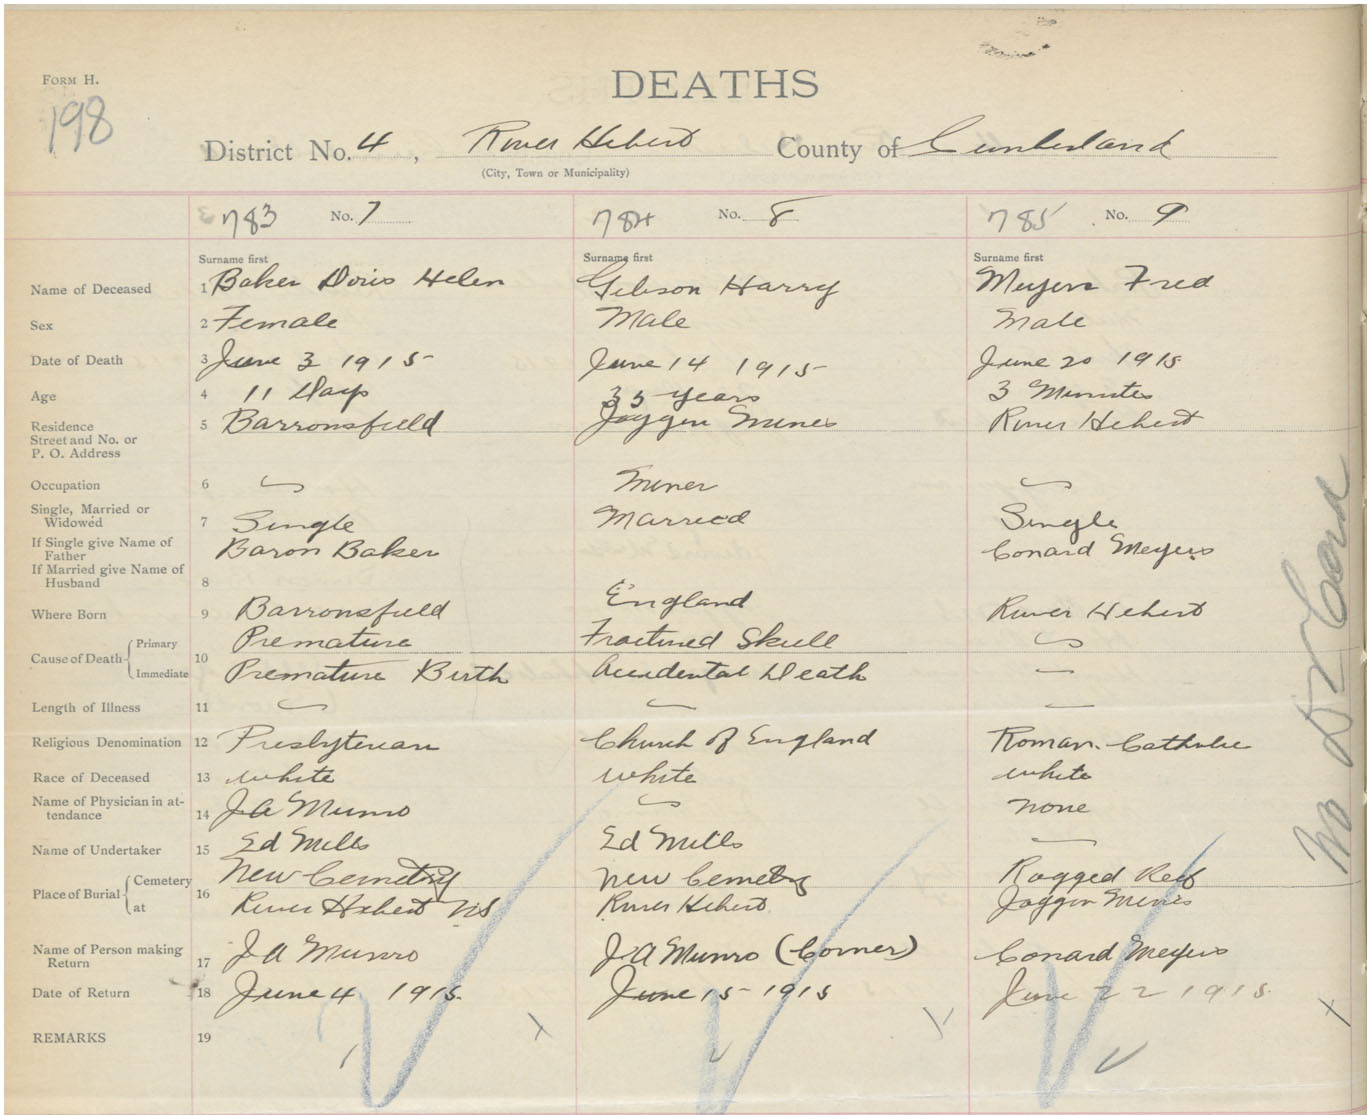 FORM H.
198
DEATHS
District No. 4, River Hebert County of Cumberland
(City, Town or Municipality)
783 No. 7 784 No. 8 785 No. 9
Surname first Surname first Surname first
Name of Deceased 1 Baker Doris Helen Gibson Harry Meyers Fred
Sex 2 Female Male Male
Date of Death 3 June 3 1915 June 14 1915 June 20 1915
Age 4 11 Days 35 years 3 Minutes
Residence Street and No. or P. O. Address 5 Barronsfield Joggin Mines River Hebert
Occupation 6 Miner
Single, Married or Widowed 7 Single Married Single
If Single give Name of Father Baron Baker Conard Meyers
If Married give Name of Husband 8
Where Born 9 Barronsfield England River Hebert
Cause of Death 10 Primary Premature Fractured Skull
Immediate Premature Birth Accidental Death
Length of Illness 11
Religious Denomination 12 Presbyterian Church of England Roman. Catholic
Race of Deceased 13 white white white
Name of Physician in attendance 14 J A Munro none
Name of Undertaker 15 Ed Mills Ed Mills
Place of Burial 16 Cemetery New Cemetry new Cemetry Ragged Reef
at River Hebert NS River Hebert Joggin Mines
Name of Person making Return 17 J A Munro J A Munro (Corner) Conard Meyers
Date of Return 18 June 4 1915. June 15 1915 June 22 1915.
REMARKS 19
No Dr Card